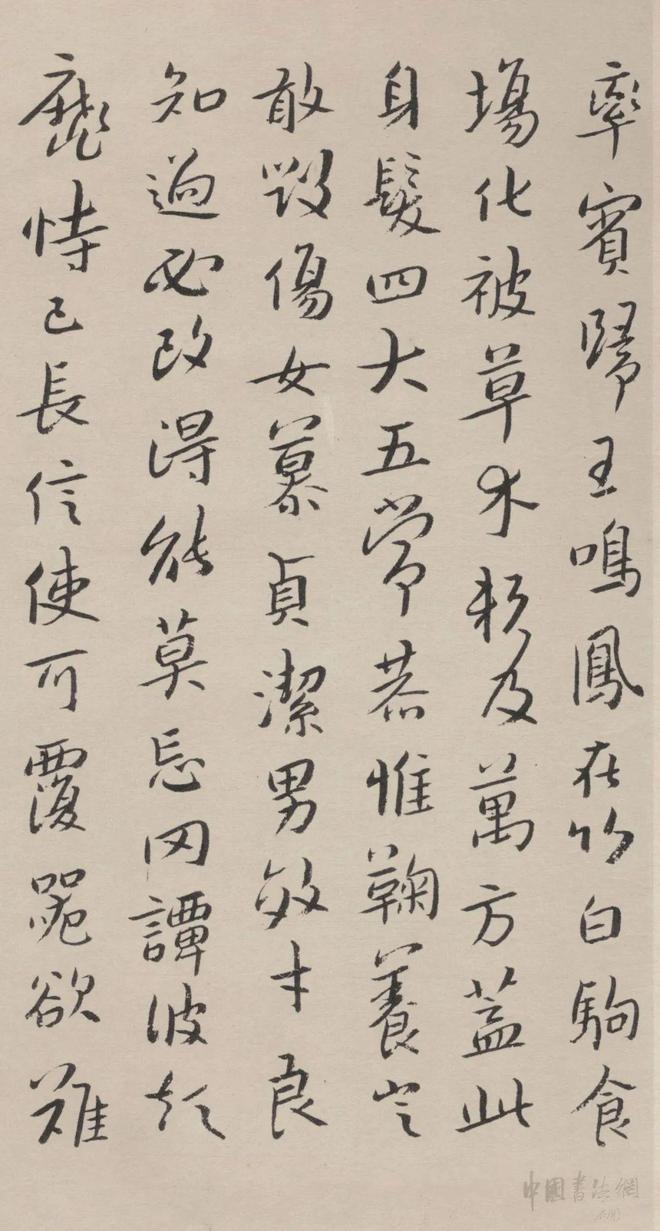 率賓歸王鳴鳳在竹白駒食
場化被草木賴及萬方蓋此
身髮四大五常恭惟鞠養豈
敢毀傷女慕貞潔男效才良
知過必改得能莫忘罔譚彼短
靡恃己長信使可覆器欲難
中國書法網